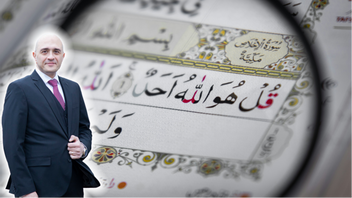 سُورَةُ الإِخْلَاصِ
مَكِّيَّة
بِسْمِ اللَّهِ
قُلْ هُوَ اللَّهُ أَحَدٌ ١ اللَّهُ